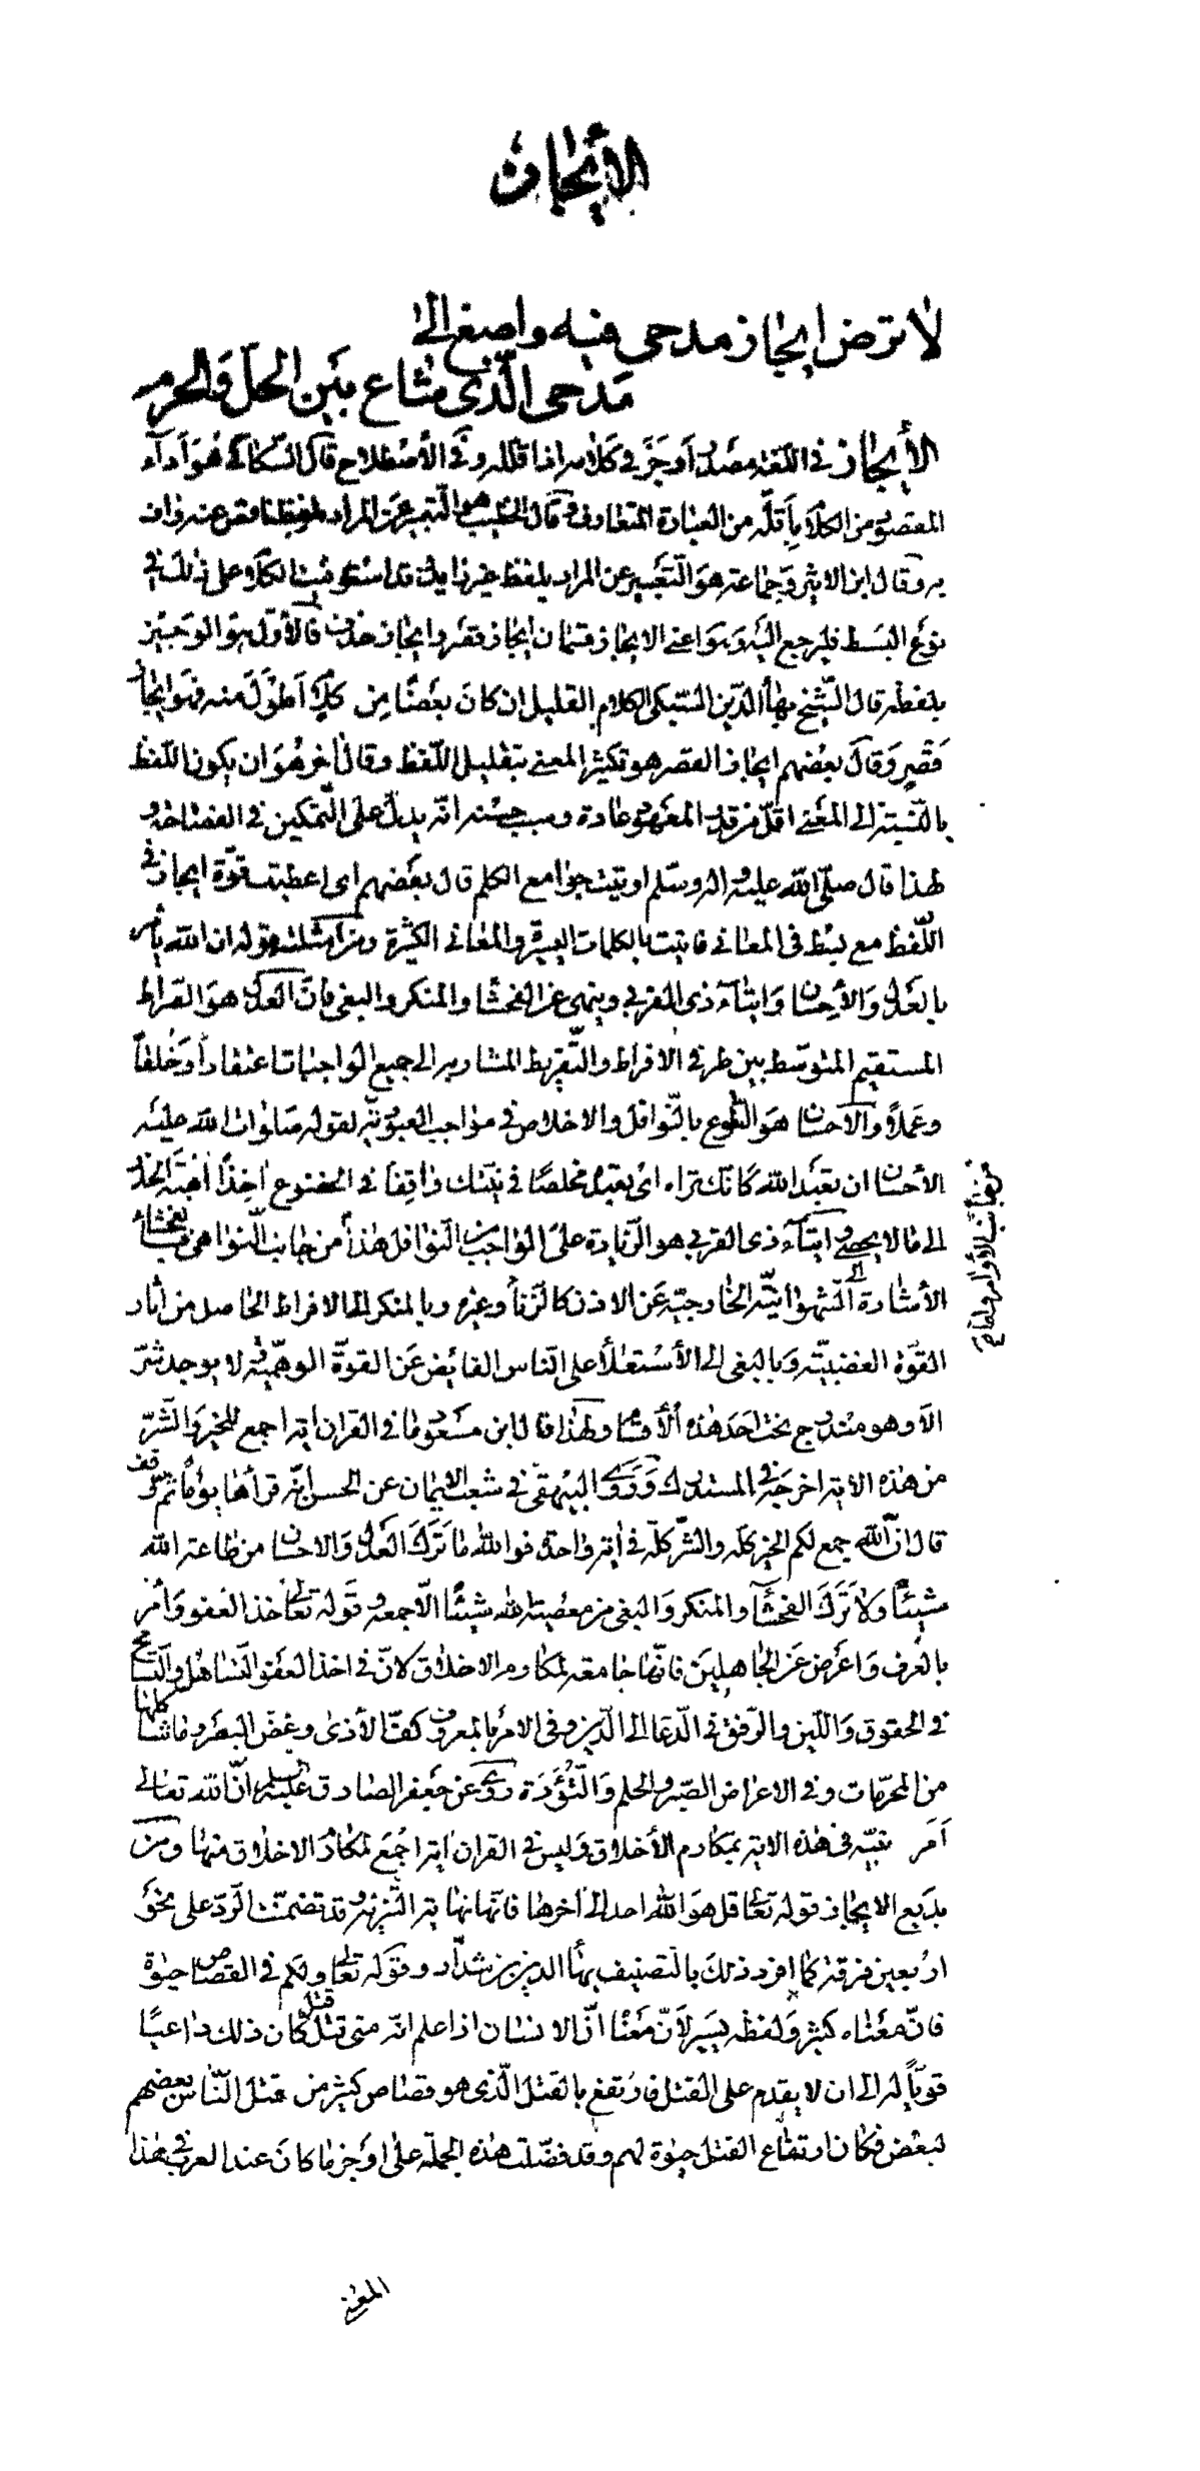 الأيجاز
لا ترض ايجاز مدحى فيه واصغ الى
مدحى الّذى شاع بين الحلّ والحرم
الأيجاز في اللّغة مصدر أوجز في كلامه اذا قلّله وفي الأصطلاح قال السّكاكى هو أدآء
المقصود من الكلام بأقلّ من العبارة المتعارف وقال الخطيب هو التّعبير عن المراد بلفظ ناقص عنه واف
به وقال ابن الاثير وجماعة هو التّعبير عن المراد بلفظ غير زايد وقد استوفيت الكلام على ذلك في
نوع البسط فليرجع اليه وهو اعنى الايجاز قسمان ايجاز قصر وايجاز حذف فالأوّل هو الوجيز
بلفظه قال الشّيخ بهاء الدّين السّبكى الكلام القليل ان كان بعضًا من كلام أطول منه فهو ايجاز
قصر وقال بعضهم ايجاز القصر هو تكثير المعنى بتقليل اللّفظ وقال أخر هو ان يكون اللّفظ
بالنّسبة الى المعنى اقلّ من قدر المعهود عادة وسبب حسنه انّه يدلّ على التّمكين في الفصاحة و
لهذا قال صلّى الله عليه واله وسلّم اوتيت جوامع الكلم قال بعضهم اى اعطيت قوّة ايجاز في
اللّفظ مع بسط فى المعانى فاتيت بالكلمات اليسيرة والمعانى الكثيرة ومن امثلته قوله ان الله يأمر
بالعدل والأحسان وايتآء ذى القربى وينهى عن الفحشا والمنكر والبغى فانّ العدل هو الصّراط
المستقيم المتوسّط بين طرفى الافراط والتّفريط المشار به الى جميع الواجبات اعتقادًا وخلقًا
وعملاً والاحسان هو التطوع بالنّوافل والاخلاص في مواجب العبوديّة لقوله صلوات الله عليه
الأحسان ان تعبد الله كانّك تراه اى تعبده مخلصًا في نيّتك واقفًا في الخضوع اخذًا اهبة الحذر
الى ما لا يحصى وايتآء ذى القربى هو الزّيادة على الواجب من النّوافل هذا من جانب الأوامر وامّا في
جانب النّواهى فبالفحشاء
الأشارة الى الشّهوانيّة الخارجيّة عن الاذن كالزّنا وغيره وبالمنكر الى الافراط الحاصل من أثار
القوّة الغضبيّة وبالبغى الى الأستعلاء على النّاس الفائض عن القوّة الوهميّة لا يوجد شرّ
الاّ وهو مندرج تحت احد هذه الأقسام ولهذا قال ابن مسعود ما في القران اية اجمع للخير والشّرّ
من هذه الاية اخرجه في المستدرك وروى البيهقى في شعب الايمان عن الحسن انّه قرأها يومًا ثم وقف
قال انّ الله جمع لكم الخير كلّه والشّر كلّه في أية واحدة فوالله ما ترك العدل والاحسان من طاعة الله
شيئًا ولا ترك الفحشآ والمنكر والبغى من معصية الله شيئًا الاّ جمعه وقوله تعالى خذ العفو وأمر
بالعرف واعرض عن الجاهلين فانّها جامعة لمكارم الاخلاق لانّ في اخذ العفو التّساهل والتّسامح
في الحقوق واللّين والرّفق في الدّعا الى الدّين وفى الامر بالمعروف كفّ الأذى وغضّ البصر وما شاكلهما
من المحرّمات وفى الاعراض الصّبر والحلم والتّؤدة روى عن جعفر الصّادق عليه السلم انّ الله تعالى
أمر نبيّه فى هذه الاية بمكارم الأخلاق وليس في القران اية اجمع لمكارم الاخلاق منها ومن
بديع الايجاز قوله تعالى قل هو الله احد الى أخرها فانّها نهاية التّنزيه وقد تضمّنت الرّدّ على نحو
اربعين فرقة كما افرد ذلك بالتّصنيف بهأ الدين بن شدّاد وقوله تعالى ولكم في القصاص حيوة
فانّ معناه كثير ولفظه يسير لأنّ معناه انّ الانسان اذا علم انّه متى قتل قتل كان ذلك داعيًا
قويّاً له الى ان لا يقدم على القتل فارتفع بالقتل الّذى هو قصاص كثير من قتل النّاس بعضهم
لبعض فكان ارتفاع القتل حيوة لهم وقد فضّلت هذه الجملة على اوجز ما كان عند العرب في هذا
المعنى